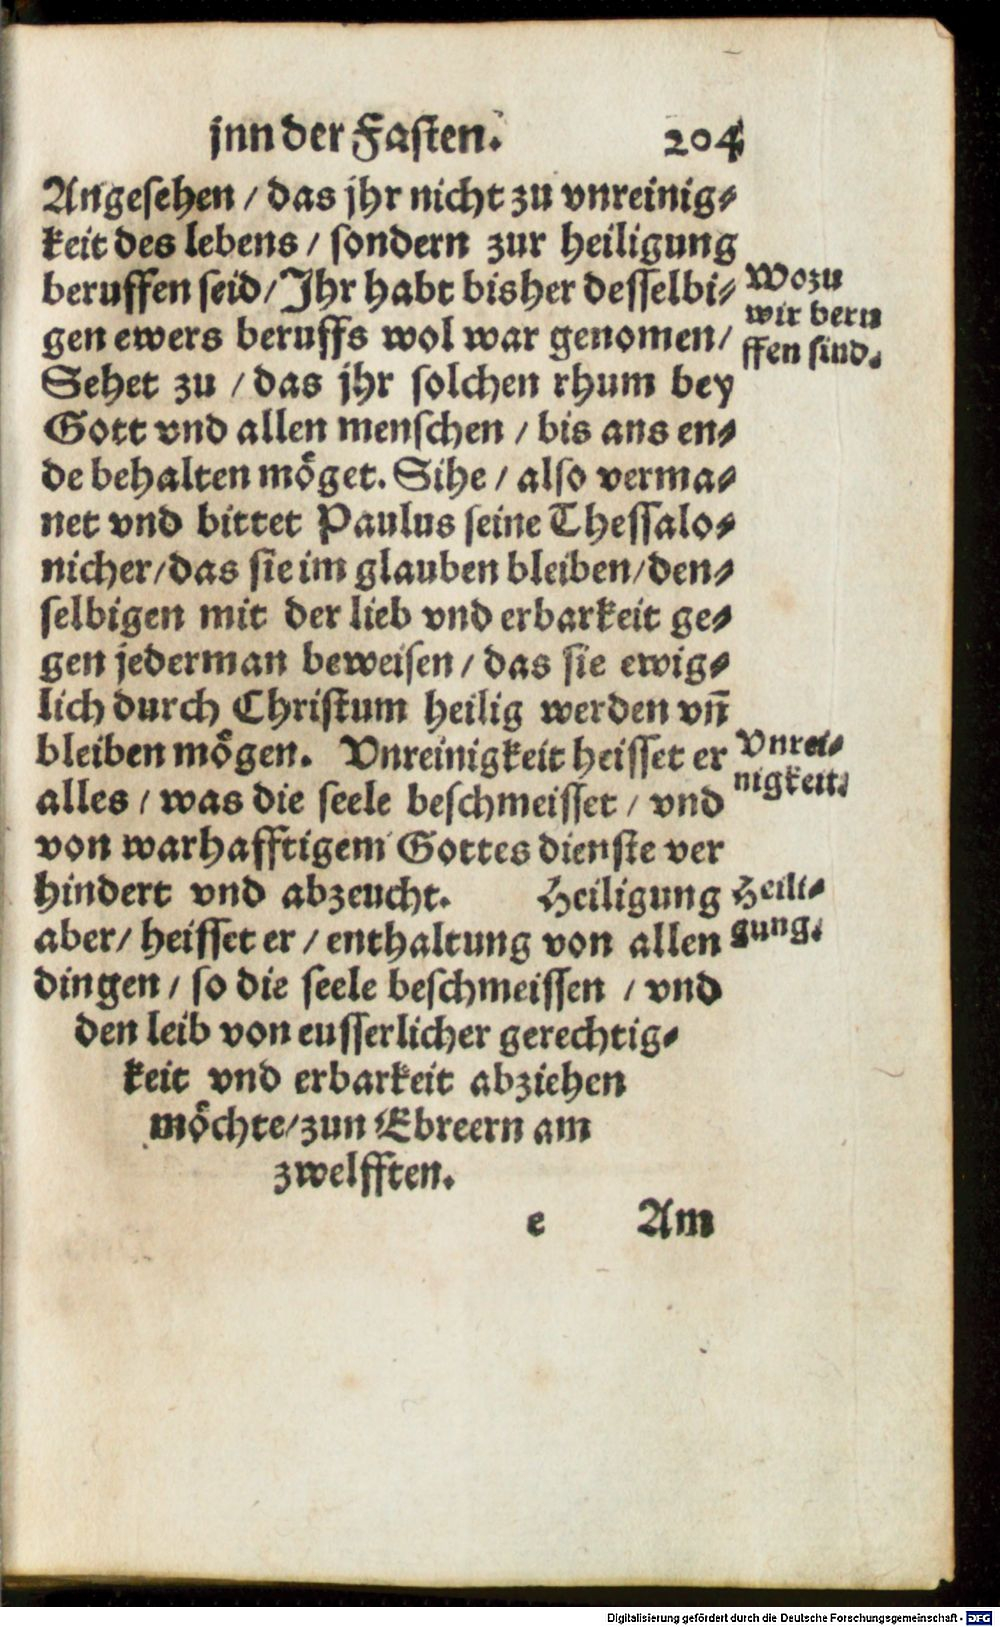 jnn der Fasten. 204
Angesehen / das jhr nicht zu vnreinig⸗
keit des lebens / sondern zur heiligung
beruffen seid / Jhr habt bisher desselbi⸗
gen ewers beruffs wol war genomen /
Sehet zu / das jhr solchen rhum bey
Gott vnd allen menschen / bis ans en⸗
de behalten möget. Sihe / also verma⸗
net vnd bittet Paulus seine Thessalo⸗
nicher / das sie im glauben bleiben / den⸗
selbigen mit der lieb vnd erbarkeit ge⸗
gen jederman beweisen / das sie ewig⸗
lich durch Christum heilig werden vn̄
bleiben mögen. Vnreinigkeit heisset er
alles / was die seele beschmeisset / vnd
von warhafftigem Gottes dienste ver
hindert vnd abzeucht. Heiligung
aber / heisset er / enthaltung von allen
dingen / so die seele beschmeissen / vnd
den leib von eusserlicher gerechtig⸗
keit vnd erbarkeit abziehen
möchte / zun Ebreern am
zwelfften.
e Am
Wozu
wir beru
ffen sind.
Vnrei⸗
nigkeit.
Heili⸗
gung.
Digitalisierung gefördert durch die Deutsche Forschungsgemeinschaft - DFG